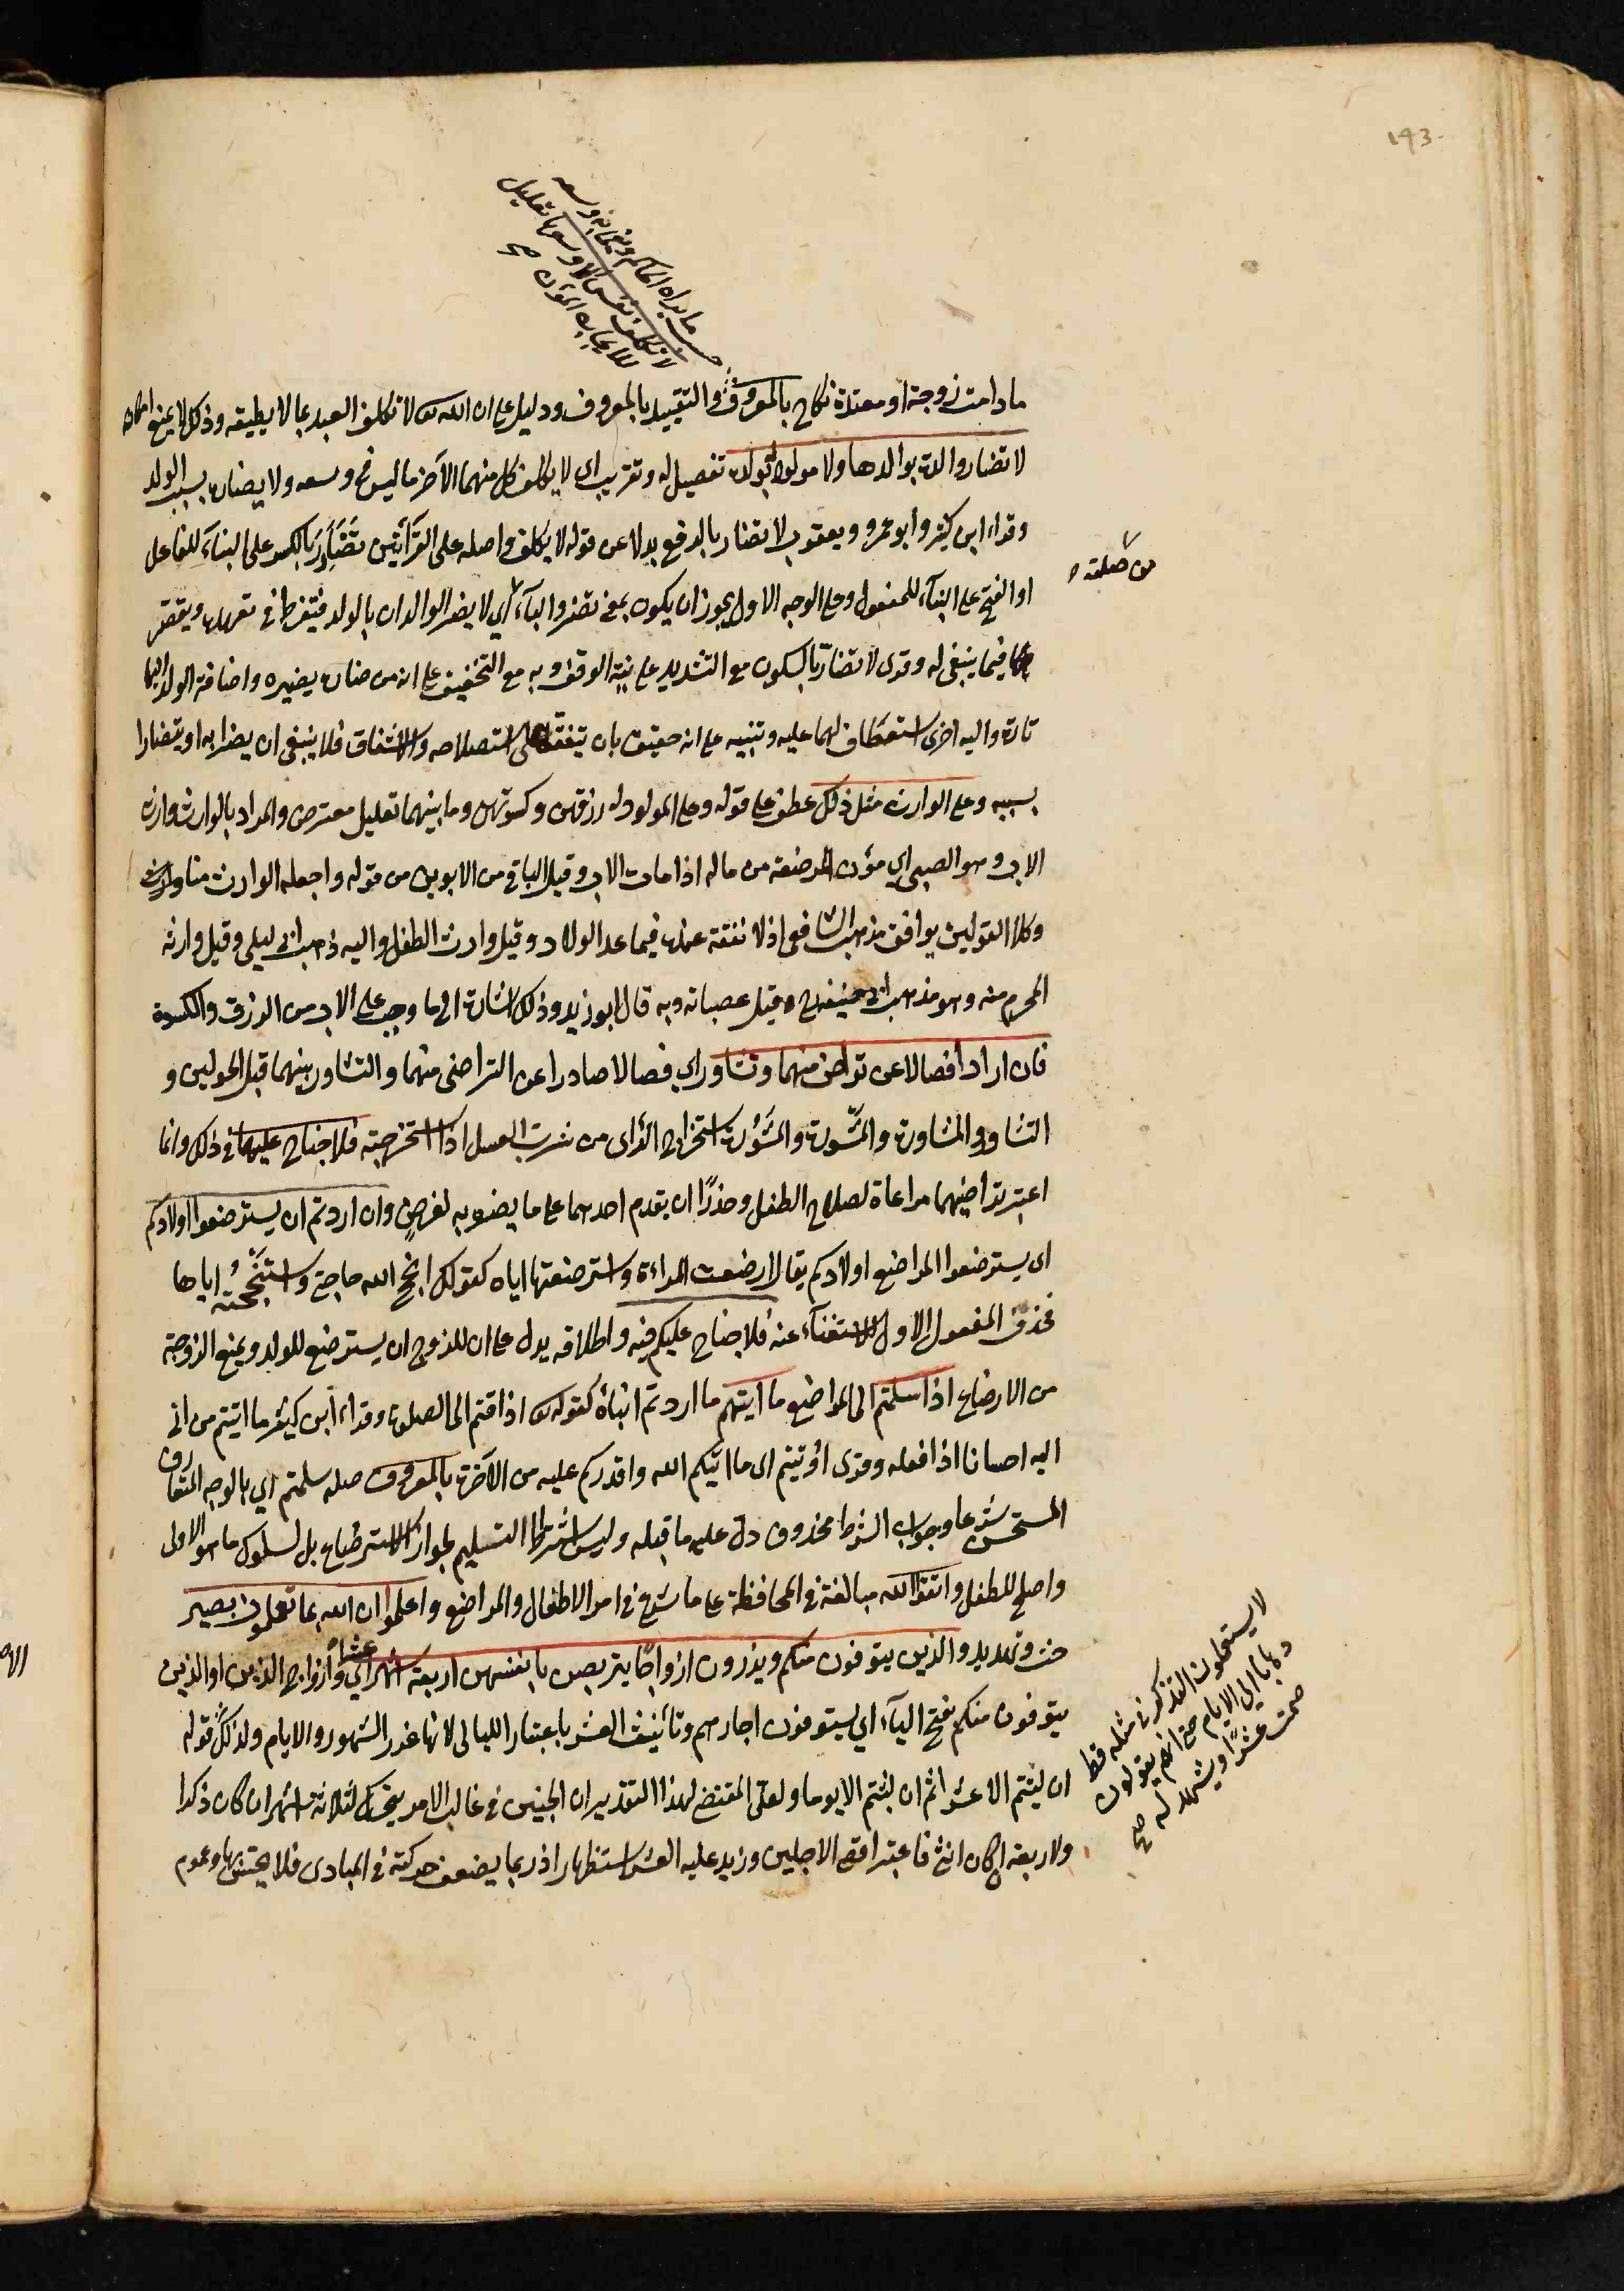 193
حسب ما يراه الحاكم ويفي به وسعه
لا تكلف نفس الا وسعها تعليل
للايجاب المؤن صح
ما دامت زوجة او معتدة نكاح بالمعروف والتقييد بالمعروف ودليل على ان الله تع لا تكلف العبد بما لا يطيقه وذلك لا يمنع امكانه
لا تضار والدة بوالدها ولا مولود له بولده تفصيل له وتقريب اى لا يكلف كل منهما الآخر ما ليس فى وسعه ولا يضاره بسبب الولد
وقراء ابن كثير وابو عمرو ويعقوب لا تضار بالرفع بدلا عن قوله لا تكلف واصله على القرآئتين تضارر بالكسر على البنآء للفاعل
او الفتح على البنآء للمفعول وعلى الوجه الاول يجوز ان يكون بمعنى تضر والبآء اي لا يضر الوالدان بالولد فيتفرط فى تعهده ويقصر
من صلته
فيما ينبغى له وقرى لا تضار بالسكون مع التشديد على نية الوقف وبه مع التخفيف على انه من ضاره يضيره واضافة الولد اليها
تارة واليه اخرى استعطاف لهما عليه وتنبيه على انه حقيق بان يتفقا على استصلاحه والاشفاق فلا ينبغى ان يضرا به او يتضارا
بسببه وعلى الوارث مثل ذلك عطف على قوله وعلى المولود له رزقهن وكسوتهن وما بينهما تعليل معترض والمراد بالوارث وارث
الاب وهو الصبى اي مؤن المرضعة من ماله اذا مات الاب وقيل الباقى من الابوين من قوله واجعله الوارث منا
وكلا القولين يوافق مذهب الشافعى اذ لا نفقة عنده فيما عدا الولاد وقيل وارث الطفل واليه ذهب ابن ابى ليلى وقيل وارثه
المحرم منه وهو مذهب ابى حنيفة رح وقيل عصباته وبه قال ابو زيد وذلك اشارة الى ما وجب على الاب من الرزق والكسوة
فان ارادا فصالا عن تراض منهما وتشاور اي فصالا صادرا عن التراضى منهما والتشاور بينهما قبل الحولين و
التشاور والمشاورة والمشورة والمشورة استخراج الراى من شرت العسل اذا استخرجته فلا جناح عليهما فى ذلك وانما
اعتبر تراضيهما مراعاة لصلاح الطفل وحذرا ان يقدم احدهما على ما يضر به لغرض وان اردتم ان يسترضعوا اولادكم
اى يسترضعوا المراضع اولادكم يقال ارضعت المراءة واسترضعتها اياه كقولك انجح الله حاجتى واستنجحته اياها
فحذف المفعول الاول للاستغنآء عنه فلا جناح عليكم فيه واطلاقه يدل على ان للزوج ان يسترضع للولد ويمنع الزوجة
من الارضاع اذا سلمتم الى المراضع ما اتيتم ما اردتم ايتاءه كقوله تع اذا قمتم الى الصلوة وقراء ابن كثير ما اتيتم من اتى
اليه احسانا اذا فعله وقرى اوتيتم اى ما اتيكم الله واقدركم عليه من الآخرة بالمعروف صلة سلمتم اي بالوجه المتعارف
المستحسن شرعا وجواب الشرط محذوف دل عليه ما قبله وليس اشتراط التسليم لجواز الاسترضاع بل لسلوك ما هو الاولى
واصلح للطفل واتقوا الله مبالغة فى المحافظة على ما شرع فى امر الاطفال والمراضع واعلموا ان الله بما تعملون بصير
حث وتهديد والذين يتوفون منكم ويذرون ازواجا يتربصن بانفسهن اربعة اشهر وعشرا اي وازواج الذين او الذين
يتوفون منكم بفتح اليآء اي يستوفون اجارهم وتأنيث العشر باعتبار الليالى لانها غرر الشهور والايام ولذلك قوله
لا يستعملون التذكير فى مثله قط
ذهابا الى الايام حتى انهم يقولون
صمت عشرا ويشهد له صح
ان لبثتم الا عشرا ثم ان لبثتم الا يوما ولعل المقتضى لهذا التقدير ان الجنين فى غالب الامر يتحرك لثلاثة اشهر ان كان ذكرا
ولاربعة ان كان انثى فاعتبر اقصى الاجلين وزيد عليه العشر استظهارا اذ ربما يضعف حركته فى المبادى فلا يحس بها وعموم